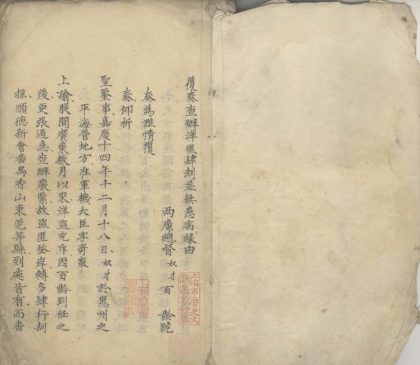 覆奏查辦洋匪肆刦並無患病緣由
兩廣總督奴才百齡跪
奏為據情覆
奏仰祈
聖鑒事嘉慶十四年十二月十八日奴才於惠州之
平海營地方准軍機大臣字寄欽奉
上諭朕聞廣東數月以來洋盜充斥因百齡到任之
後更張過急查辦嚴緊故盜匪登岸轉多肆行刦
掠順德新會番禺香山東莞等縣到處皆有而香